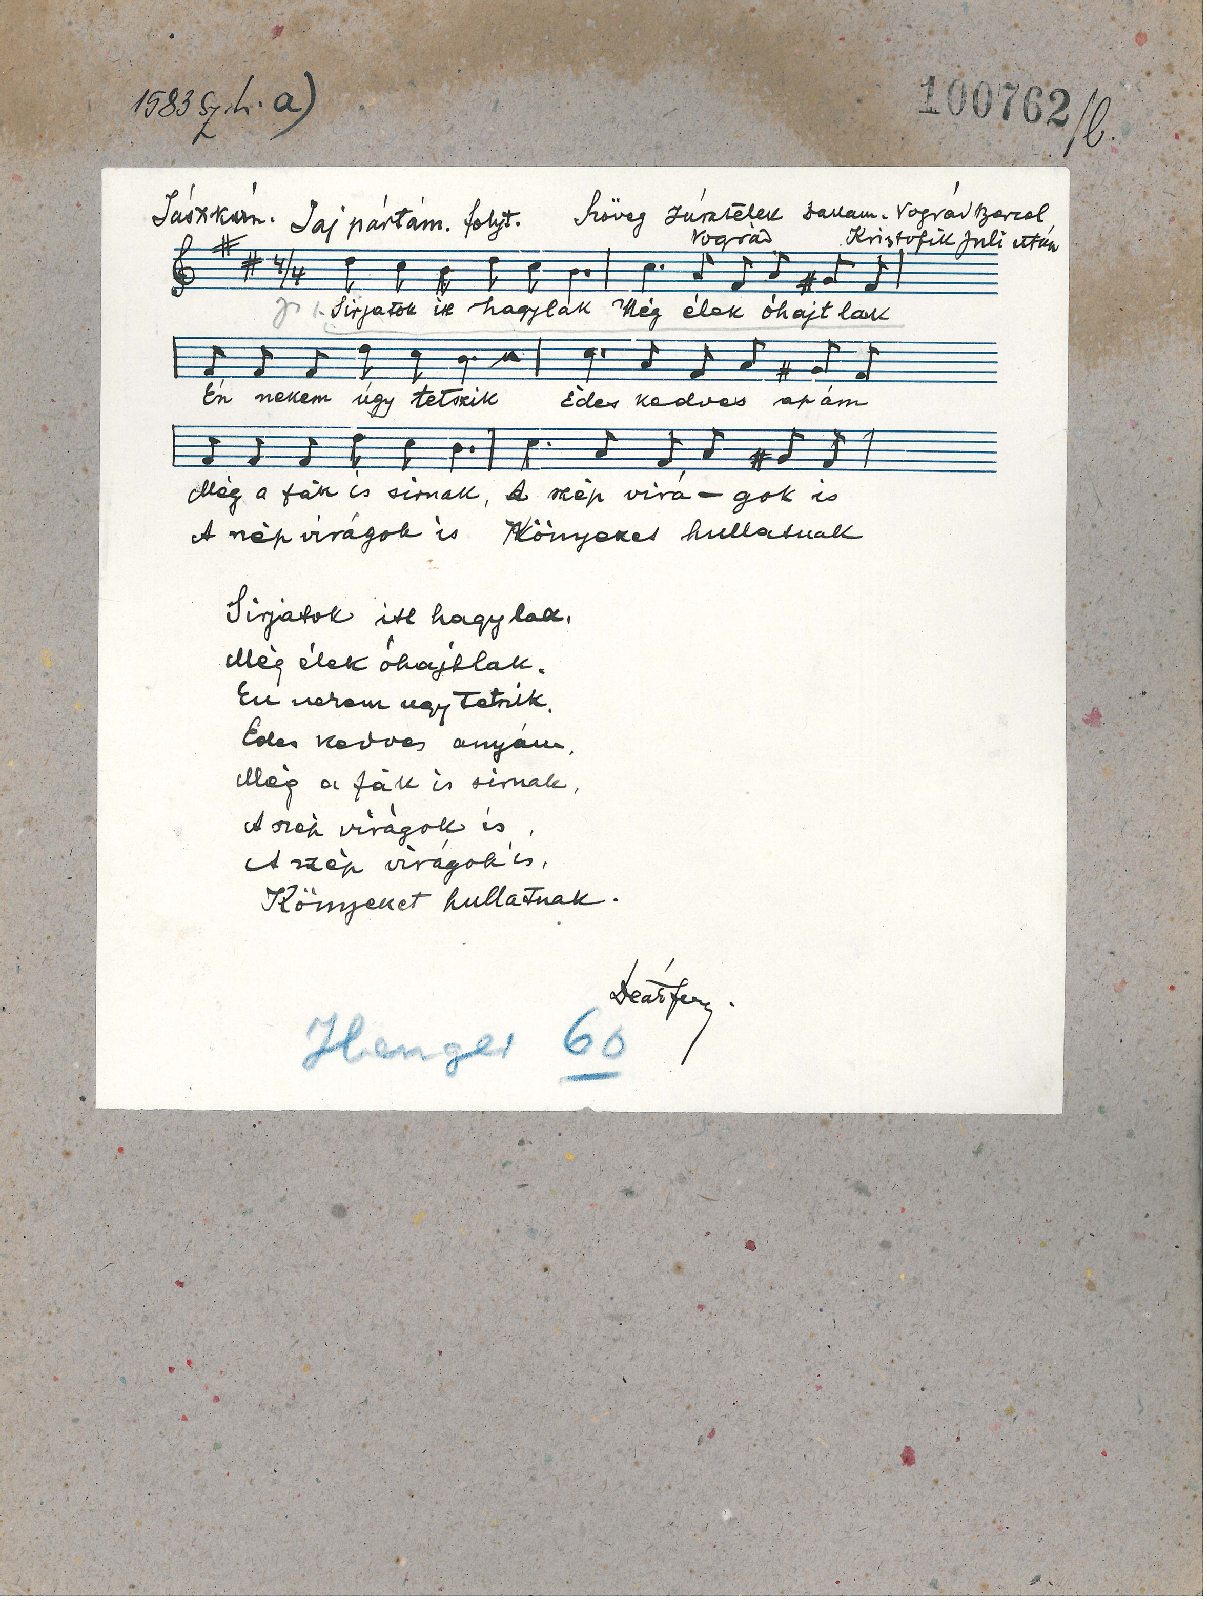 1583 sz. h. a)
100762/b.
Jaj pártám. folyt. Szöveg Zúratelek Dallam. Nográd Bercel
Nográd Kristofik Juli után
4/4
Sirjatok itt hagylak Még élek óhajtlak
Én nekem úgy tetszik Édes kedves apám
Még a fák is sirnak, A szép virá - gok is
A szép virágok is Könyeket hullatnak
Sirjatok itt hagylak.
Még élek óhajtlak.
En nekem ugy tetszik.
Édes kedves anyám.
Még a fák is sirnak,
A szép virágok is,
A szép virágok is,
Könyeket hullatnak.
Henger 60